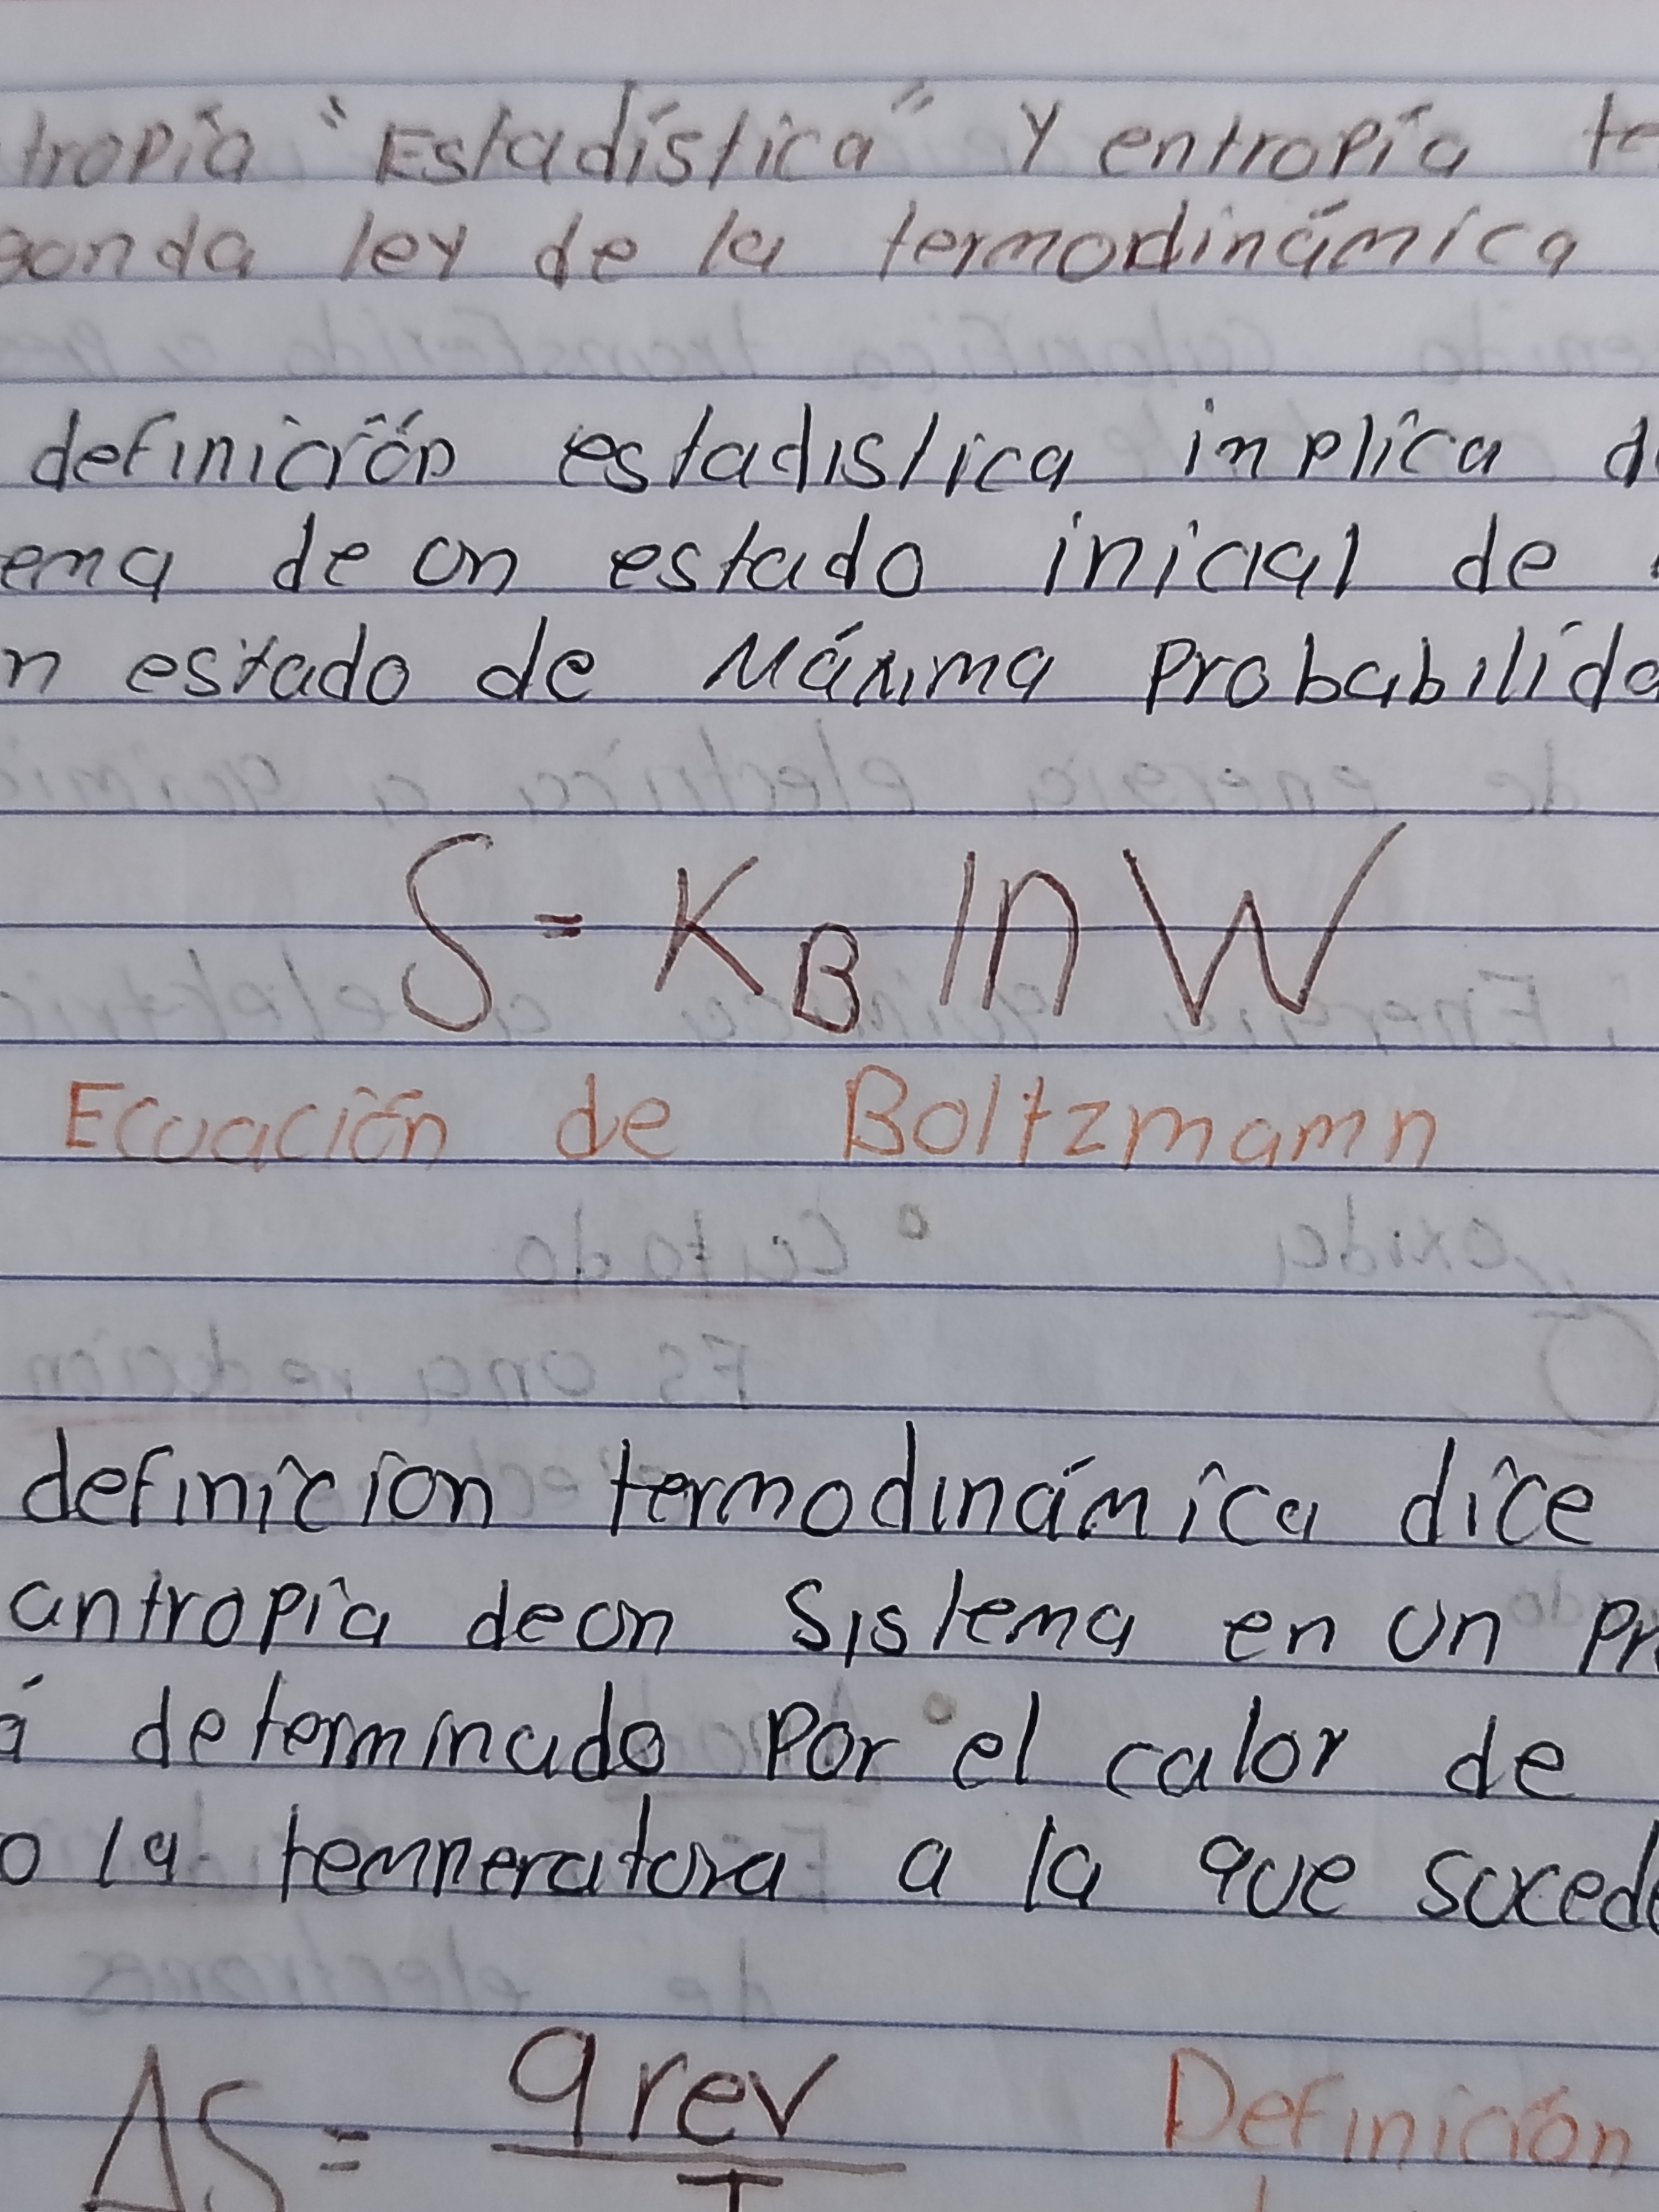 tropía "Estadística" y entropía te
gunda ley de la termodinámica
definición estadistica implica d
ema de un estado inicial de
n estado de Máxima probabilida
S = KB ln W
Ecuación de Boltzmamn
definicion termodinámica dice
antropía de un sistema en un pr
á determinado por el calor de
o la temperatura a la que sucede
ΔS = qrev
T
Definición